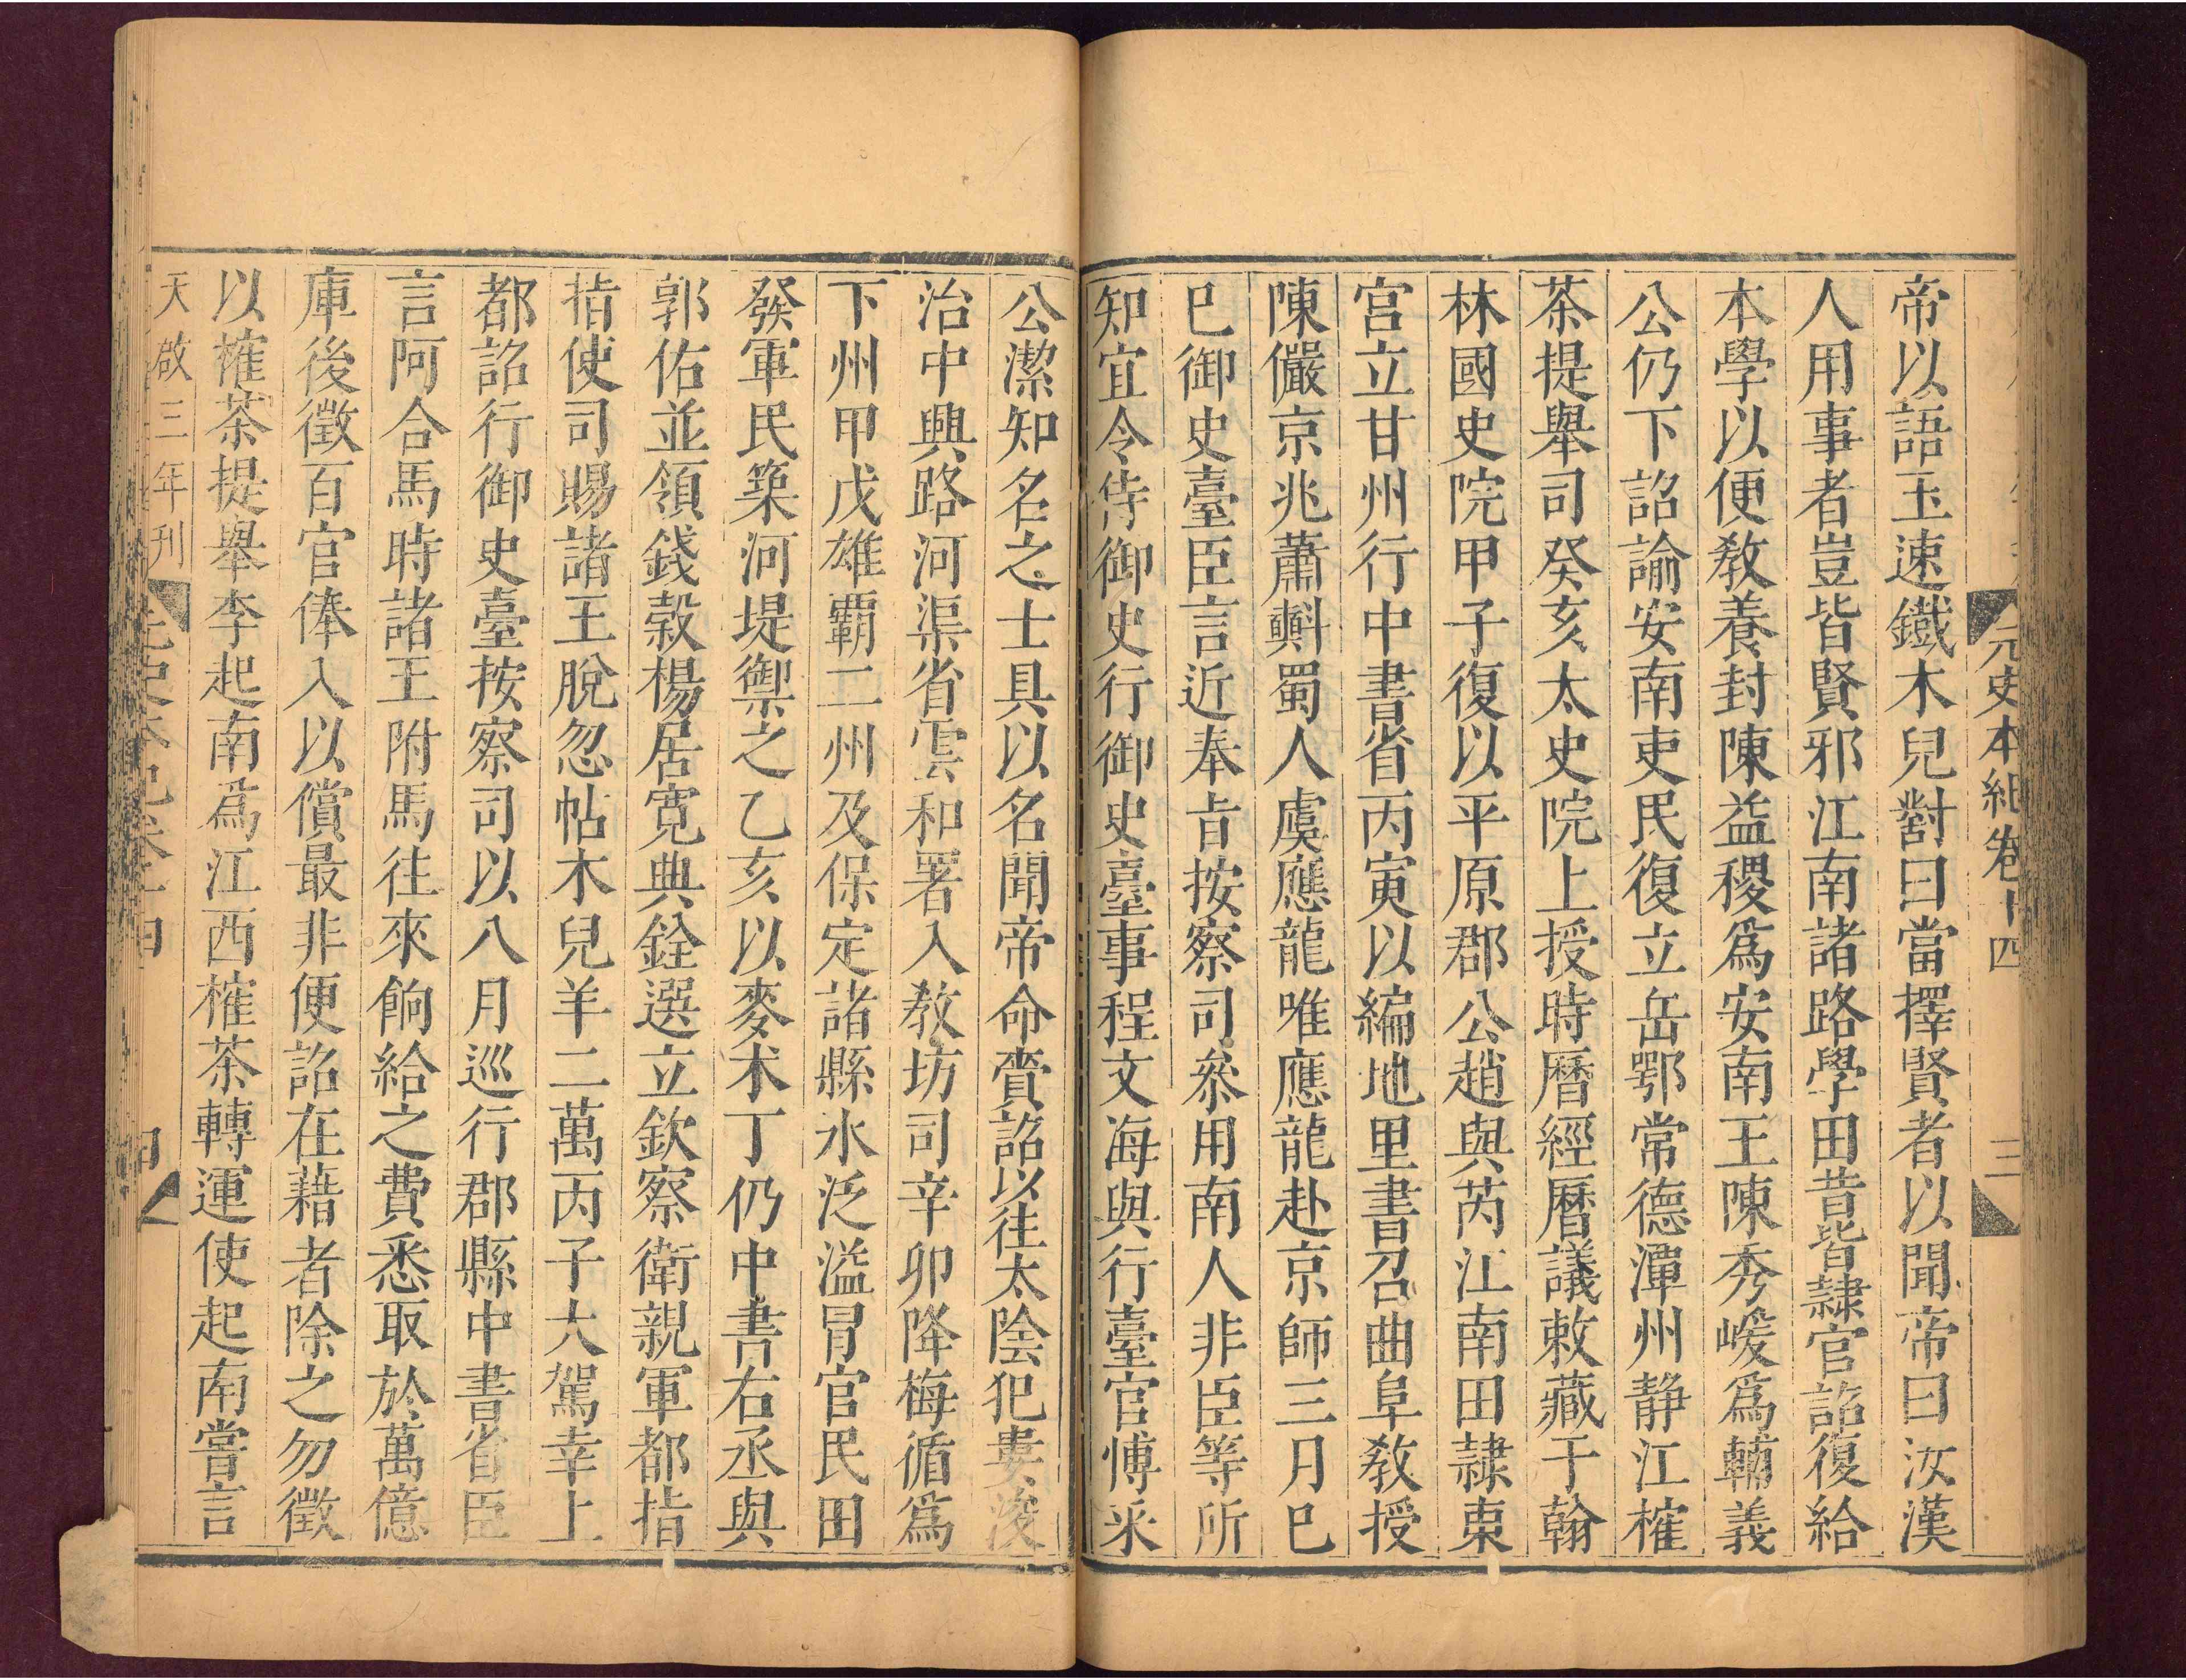 元史本紀卷十四
三
帝以語玉速鐵木兒對曰當擇賢者以聞帝曰汝漢
人用事者豈皆賢邪江南諸路學田昔皆隸官詔復給
本學以便教養封陳益稷爲安南王陳秀嵈爲輔義
公仍下詔諭安南吏民復立岳鄂常德潭州静江榷
茶提舉司癸亥太史院上授時曆經曆議敕藏于翰
林國史院甲子復以平原郡公趙與芮江南田隸東
宫立甘州行中書省丙寅以編地里書召曲阜教授
陳儼京兆蕭𣂏蜀人虞應龍唯應龍赴京師三月巳
巳御史臺臣言近奉旨按察司叅用南人非臣等所
知宜令侍御史行御史臺事程文海與行臺官愽采
公潔知名之士具以名聞帝命賫詔以往太陰犯婁浚
治中興路河渠省雲和署入教坊司辛卯降梅循爲
下州甲戌雄覇二州及保定諸縣水泛溢冐官民田
發軍民築河堤禦之乙亥以麥术丁仍中書右丞與
郭佑並領錢糓楊居寛典銓選立欽察衛親軍都指
揩使司賜諸王脫忽帖木兒羊二萬丙子大駕幸上
都詔行御史臺按察司以八月巡行郡縣中書省臣
言阿合馬時諸王附馬往來餉給之費悉取於萬億
庫後徴百官俸入以償最非便詔在藉者除之勿徴
以榷茶提舉李起南爲江西榷茶轉運使起南嘗言
天啟三年刊